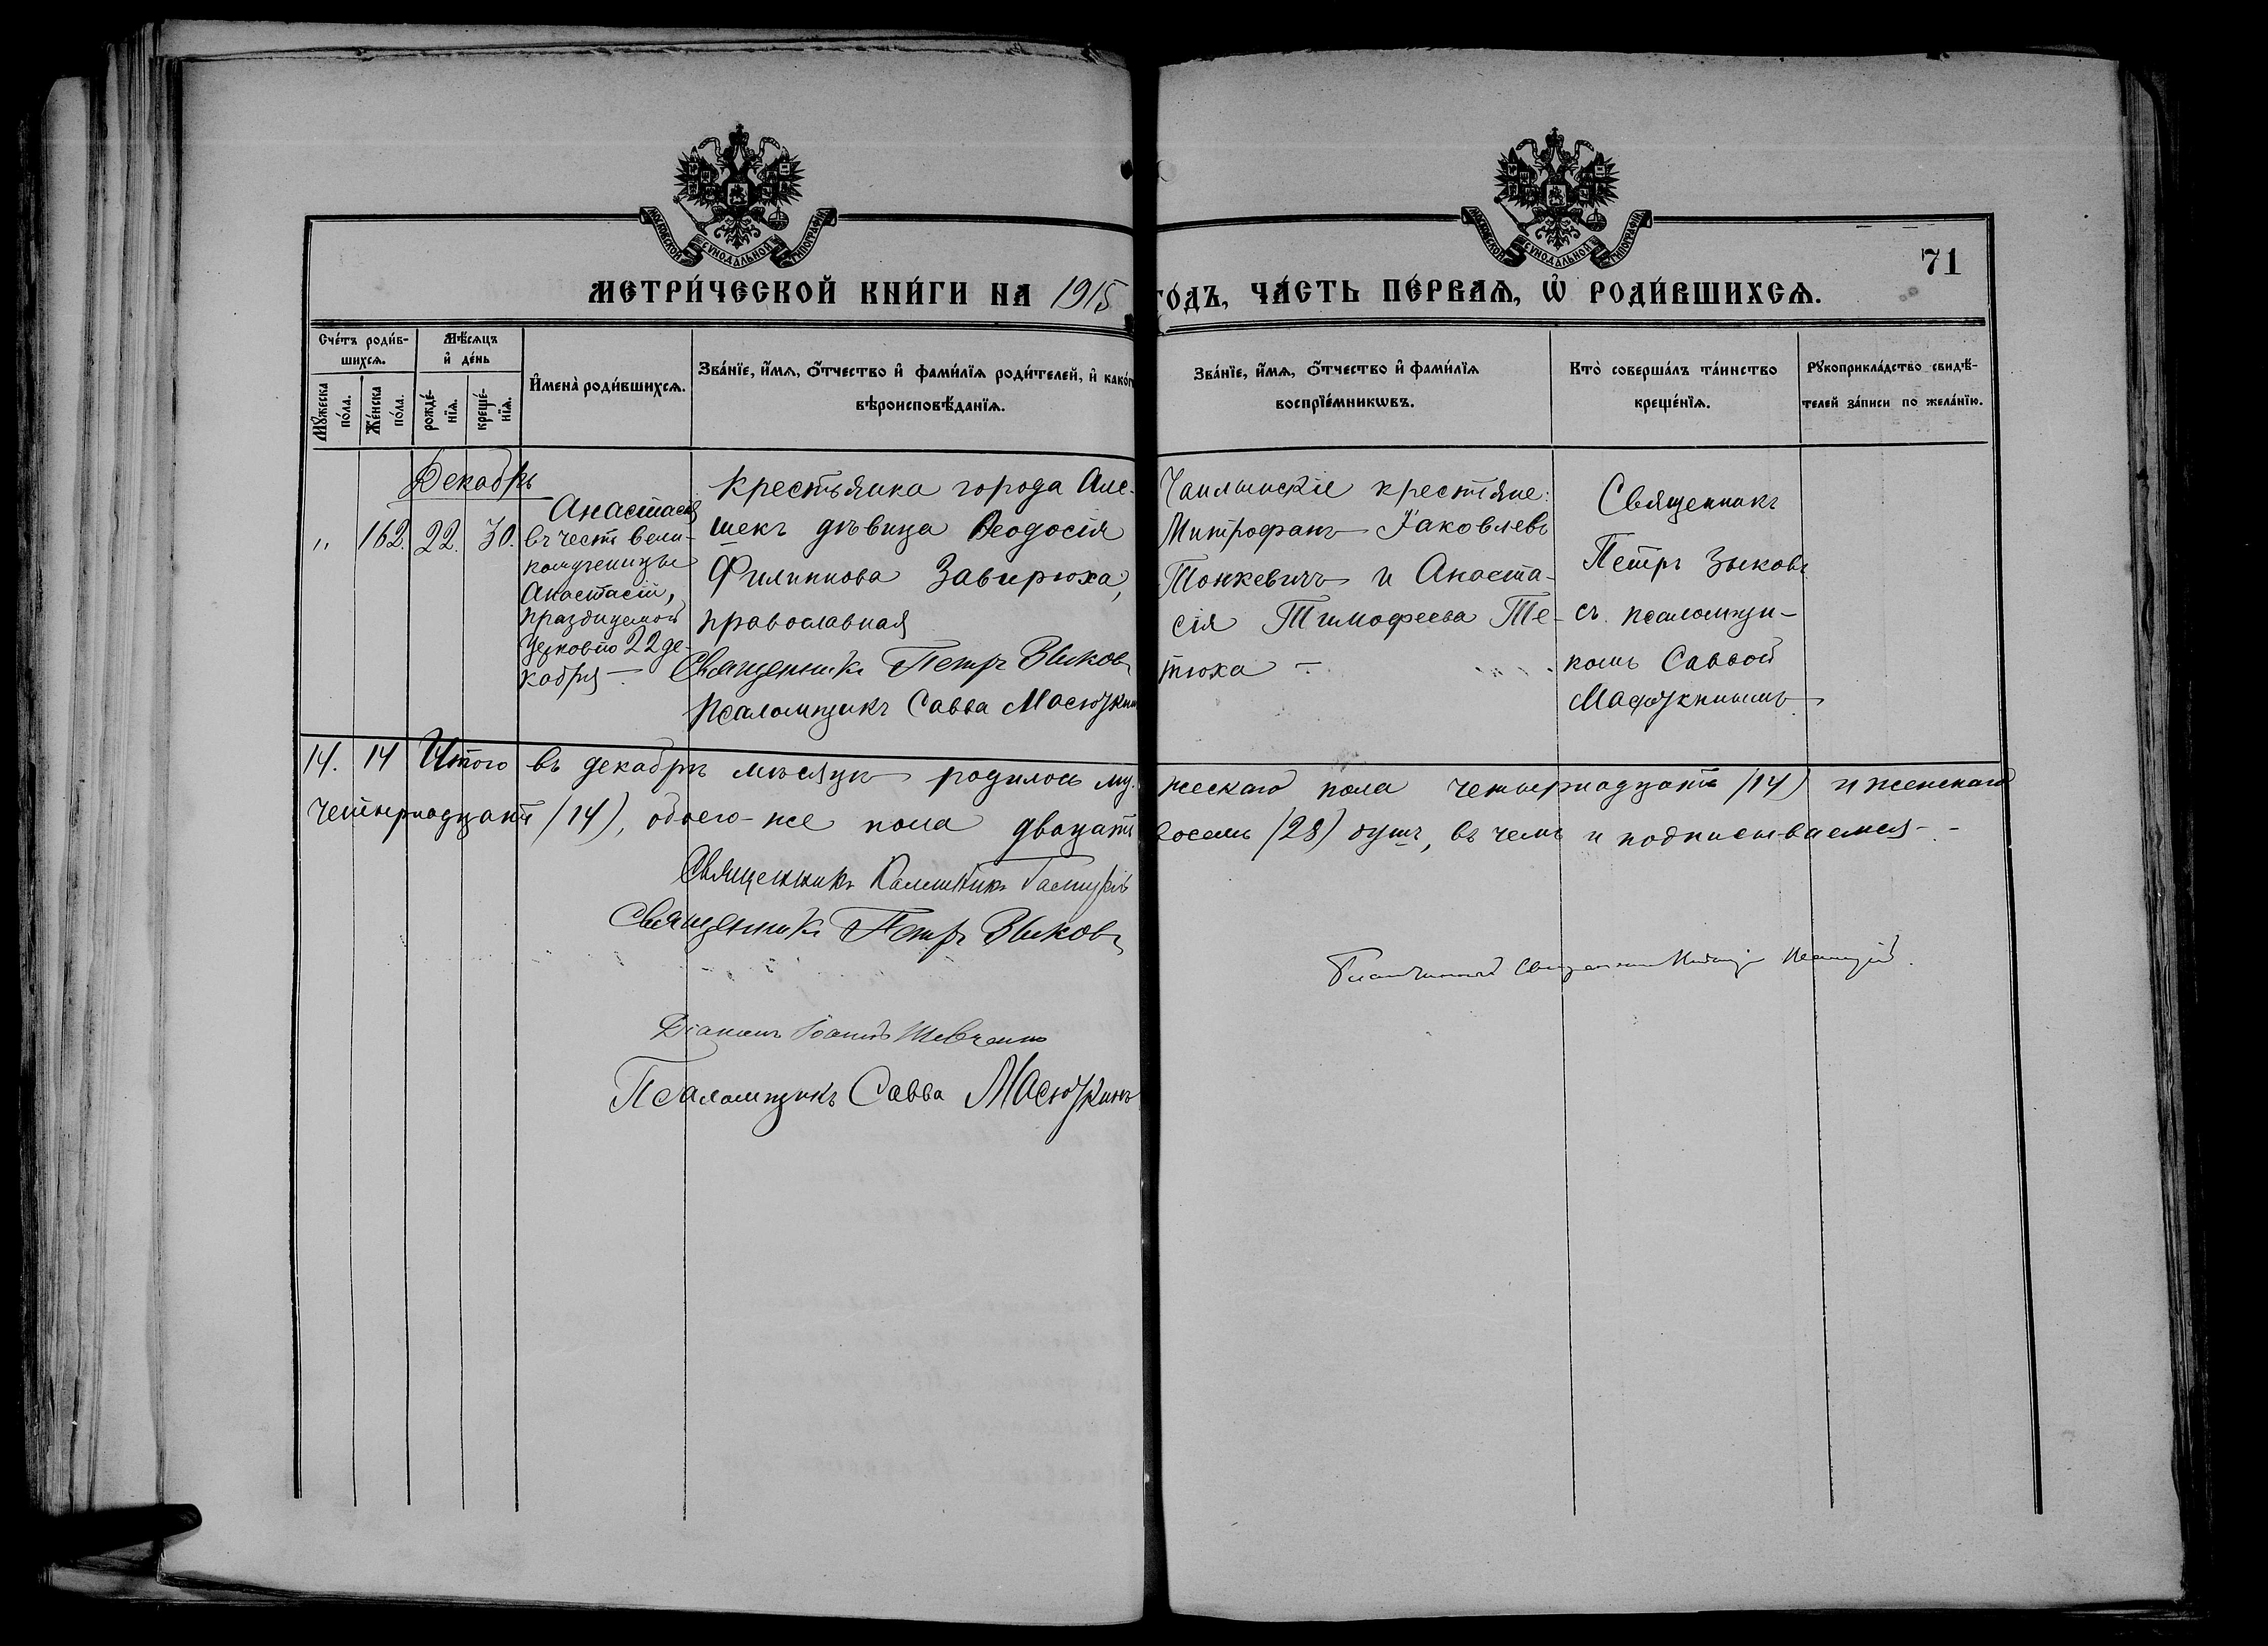 МОСКОВСКОЙ СѴНОДАЛЬНОЙ ТИПОГРАФІИ
МОСКОВСКОЙ СѴНОДАЛЬНОЙ ТИПОГРАФІИ
71
МЕТРИ́ЧЕСКОЙ КНИ́ГИ НА 1915 ГО́ДЪ, ЧА́СТЬ ПЕ́РВАѦ, Ѡ҆ РОДИ́ВШИХСѦ.
Сче́тъ роди́в-
шихсѧ.
Мꙋ́жеска
по́ла.
Же́нска
по́ла.
Мѣ́сѧцъ
и҆ де́нь
рожде́-
нїѧ.
креще́-
нїѧ.
И҆мена̀ роди́вшихсѧ.
Зва́нїе, и҆́мѧ, ѻ҆́тчество и҆ фами́лїѧ роди́телей, и҆ како́г
вѣроисповѣ́данїѧ.
Зва́нїе, и҆́мѧ, ѻ҆́тчество и҆ фами́лїѧ
воспрїе́мникѡвъ.
Кто̀ соверша́лъ та́инство
креще́нїѧ.
Рꙋкоприкла́дство свидѣ́-
телей за́писи по жела́нїю.
Декабрь
" 162. 22. 30.
Анастасія
въ честь вели-
комученицы
Анастасіи,
празднуемой
Церковію 22 де-
кабря —
Крестьянка города Але-
шекъ дѣвица Ѳеодосія
Филиппова Завирюха,
православная
Священникъ Петръ Зыковъ
Псаломщикъ Савва Масюжкин
Чаплинскіе крестьяне:
Митрофанъ Іаковлевъ
Тонкевичъ и Анаста-
сія Тимофеева Те-
тюха —
Священникъ
Петръ Зыковъ
съ псаломщи-
комъ Саввой
Масюжкинымъ.
14. 14 Итого въ декабрѣ мѣсяцѣ родилось му- жескаго пола четырнадцать /14) и женскаго
четырнадцать /14), обоего-же пола двацать восемь /28) душъ, въ чемъ и подписываемся —
Священникъ
Священникъ Петръ Зыковъ
Благочинный Священникъ
Діаконъ Іоаннъ Шевченко
Псаломщикъ Савва Масюжкинъ